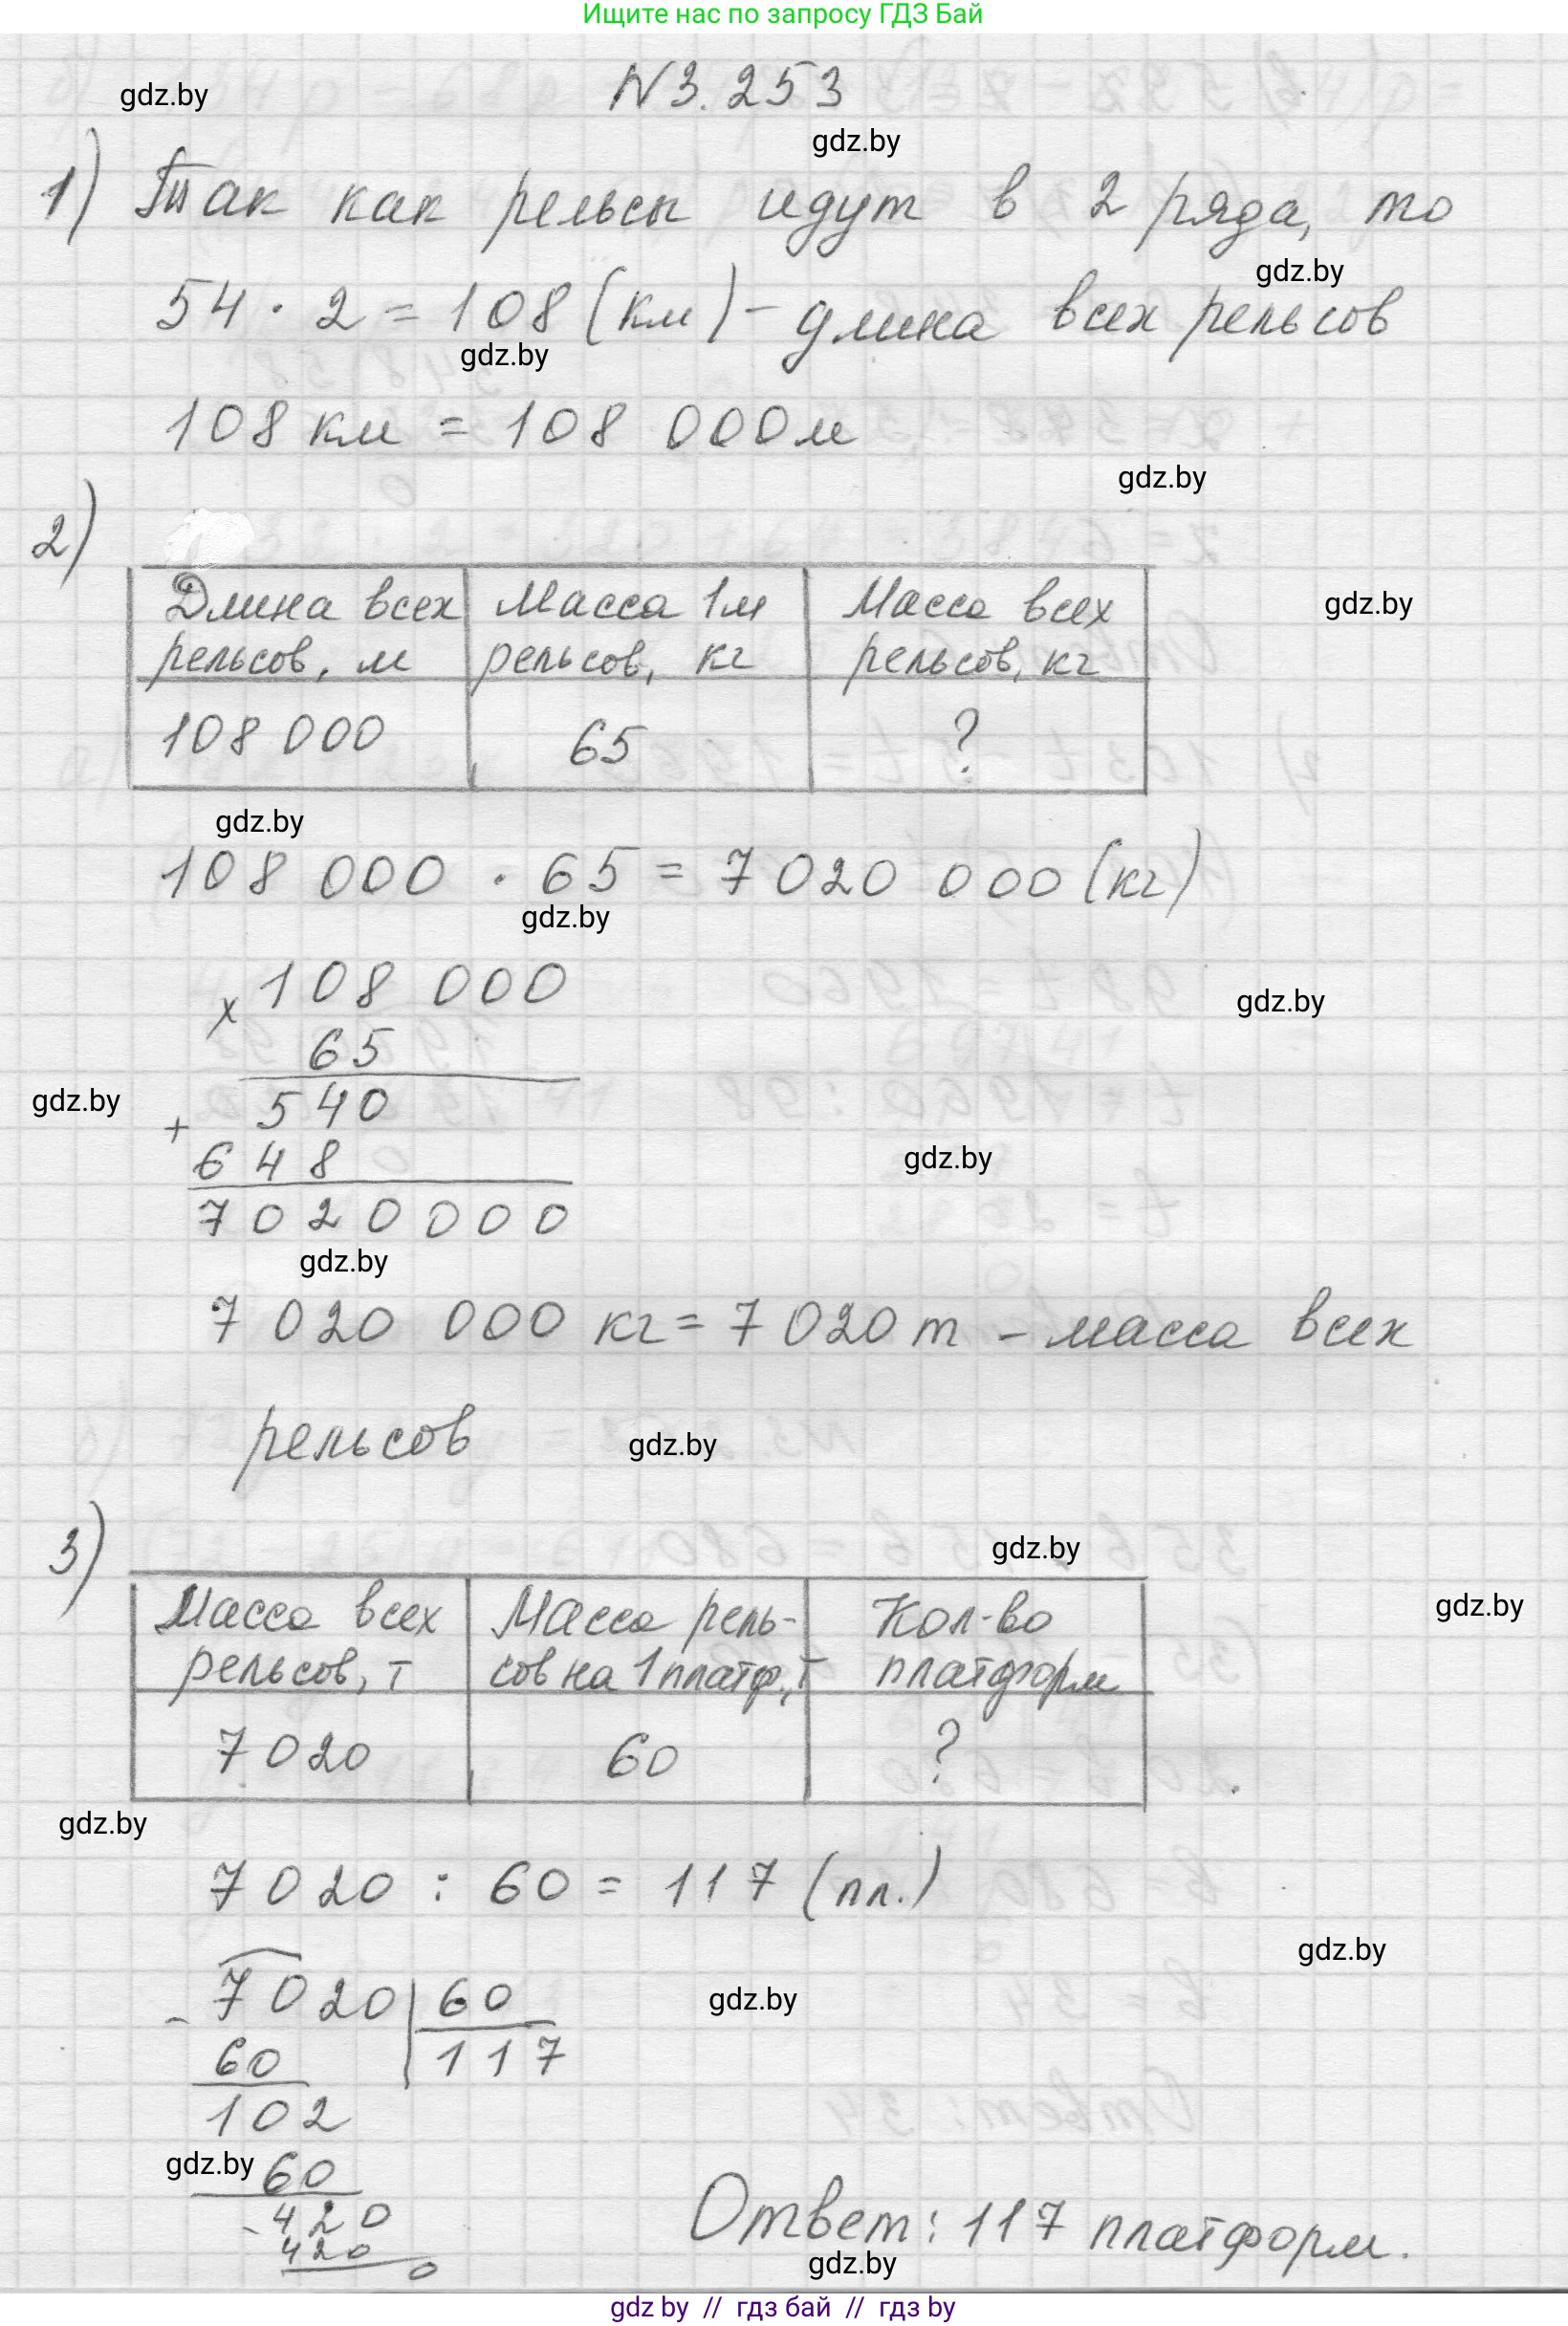 Ищите нас по запросу ГДЗ Бай
N 3.253
gdz.by
gdz.by
1) Так как рельсы идут в 2 ряда, то
gdz.by
54 · 2 = 108 (км) - длина всех рельсов
gdz.by
108 км = 108 000 м
gdz.by
2)
Длина всех рельсов, м | Масса 1м рельсов, кг | Масса всех рельсов, кг
gdz.by
108 000 | 65 | ?
gdz.by
108 000 · 65 = 7 020 000 (кг)
gdz.by
x 108 000
gdz.by
65
gdz.by
+ 540
648
gdz.by
7020000
gdz.by
7 020 000 кг = 7 020 т - масса всех
рельсов
gdz.by
3)
gdz.by
Масса всех рельсов, т | Масса рель-сов на 1 платф., т | Кол-во платформ
gdz.by
7020 | 60 | ?
gdz.by
7020 : 60 = 117 (пл.)
gdz.by
- 7020 | 60
gdz.by
60 | 117
102
gdz.by
60
- 420
420
0
Ответ: 117 платформ.
gdz.by
gdz by // гдз бай // гдз by